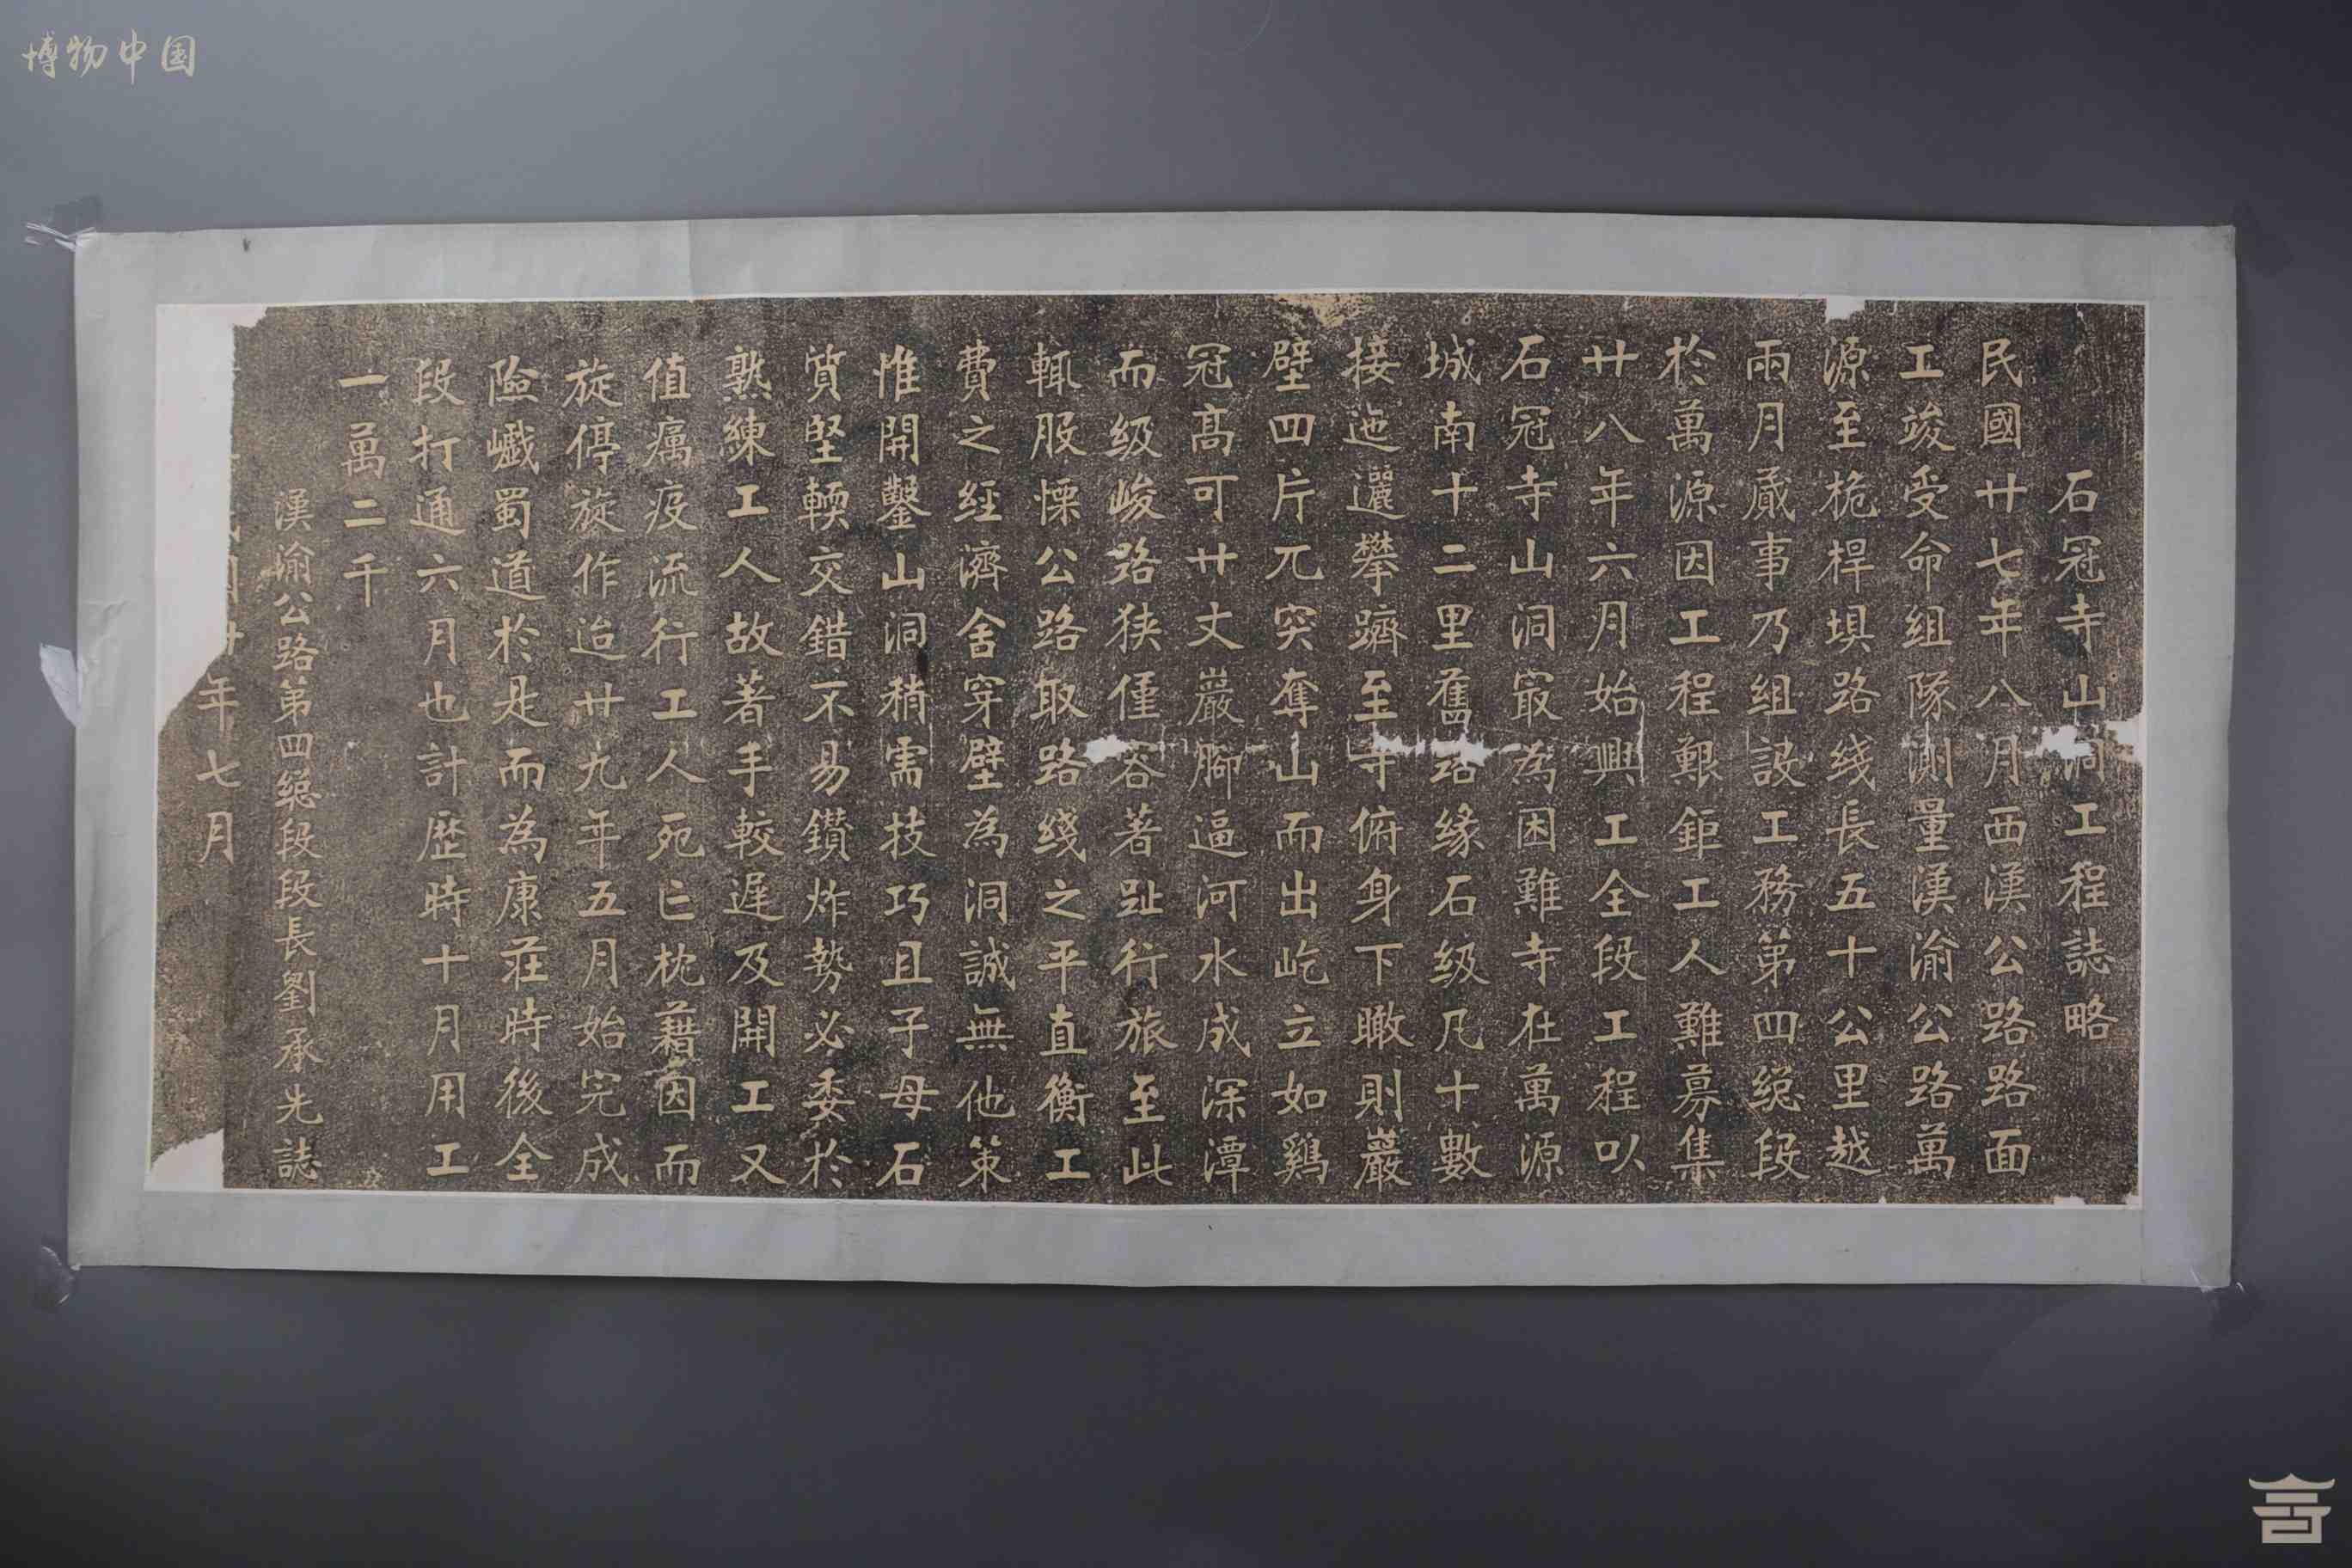 博物中国
石冠寺山洞工程誌略
民國廿七年八月西漢公路路面
工竣受命組隊測量漢渝公路萬
源至桅桿垻路綫長五十公里越
兩月蕆事乃組設工務第四縂段
於萬源因工程艱鉅工人難募集
廿八年六月始興工全段工程以
石冠寺山洞寂為困難寺在萬源
城南十二里舊路緣石級凡十數
接迤邐攀躋至寺俯身下瞰則巖
壁四片兀突奪山而出屹立如鷄
冠髙可廿丈巖腳逼河水成深潭
而級峻路狹僅容著趾行旅至此
輒股慄公路取路綫之平直衡工
費之經濟舍穿壁為洞誠無他策
惟開鑿山洞稍需技巧且子母石
質堅輭交錯不易鑽炸勢必委於
熟練工人故著手較遲及開工又
值癘疫流行工人死亡枕藉因而
旋停旋作迨廿九年五月始完成
險巇蜀道於是而為康莊時後全
段打通六月也計歷時十月用工
一萬二千
漢渝公路第四縂段段長劉承先誌
年七月